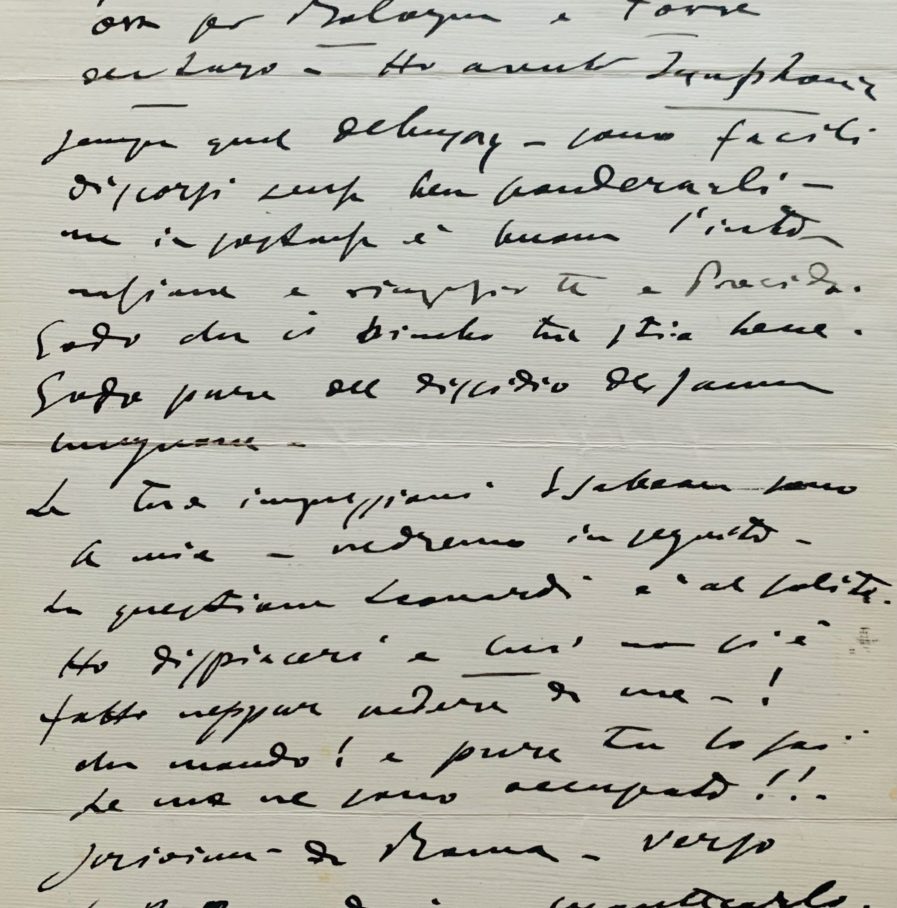 ora per Bologna e Torre
del Lago - Ho avuto Symphonia
sempre quel debussy - sono facili
discorsi senza ben ponderarli -
ma in sostanza è buona l'into
nazione e ringrazio te e
Godo che il bimbo tuo stia bene.
Godo pure del dissidio

Le tue impressioni Isabeau sono
le mie - vedremo in seguito -
La questione Leonardi è al solito.
Ho dispiaceri e lui non si è
fatto neppur vedere da me - !
che mondo! e pure tu lo sai
se me ne sono occupato!!!
scrivimi da Roma - verso
montecarlo.